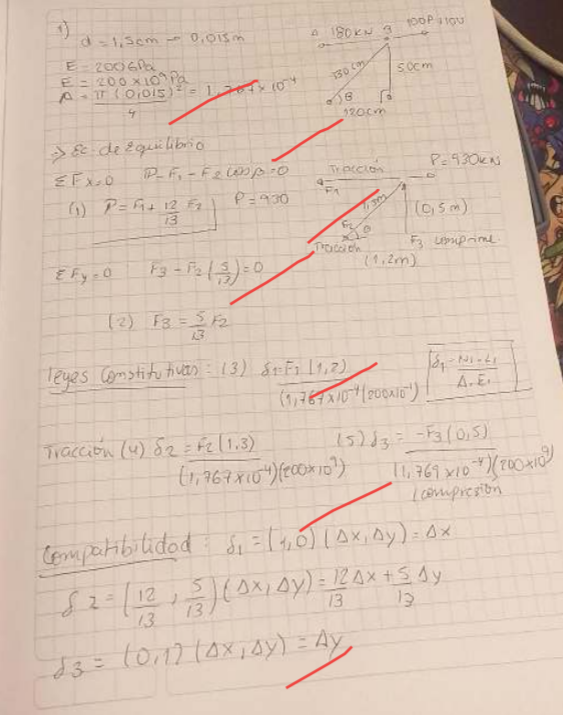 1)
d = 1,5cm → 0,015m
E = 200 GPa
E = 200 x 10⁹ Pa
A = π (0,015)² = 1,767 x 10⁻⁴
4
180KN
130cm
50cm
120cm
=> Ec. de Equilibrio
Σ Fx=0 P - F₁ - F₂ cos β = 0
(1) P = F₁ + 12/13 F₂ P = 930
Tracción P = 930KN
F₁
1,3m
F₂
(0,5m)
Tracción
F₃ comprime
(1,2m)
Σ Fy = 0 F₃ - F₂ (5/13) = 0
(2) F₃ = 5/13 F₂
Leyes Constitutivas: (3) δ₁ = F₁ (1,2)
(1,767x10⁻⁴)(200x10⁹)
δ₁ = N₁·L₁
A₁·E₁
Tracción (4) δ2 = F₂ (1,3)
(1,767x10⁻⁴)(200x10⁹)
(5) δ3 = -F₃ (0,5)
(1,769 x10⁻⁴)(200x10⁹)
(compresión
Compatibilidad: δ₁ = (1,0) (Δx, Δy) = Δx
δ2 = (12/13, 5/13) (Δx, Δy) = 12/13 Δx + 5/13 Δy
δ3 = (0,1) (Δx, Δy) = Δy